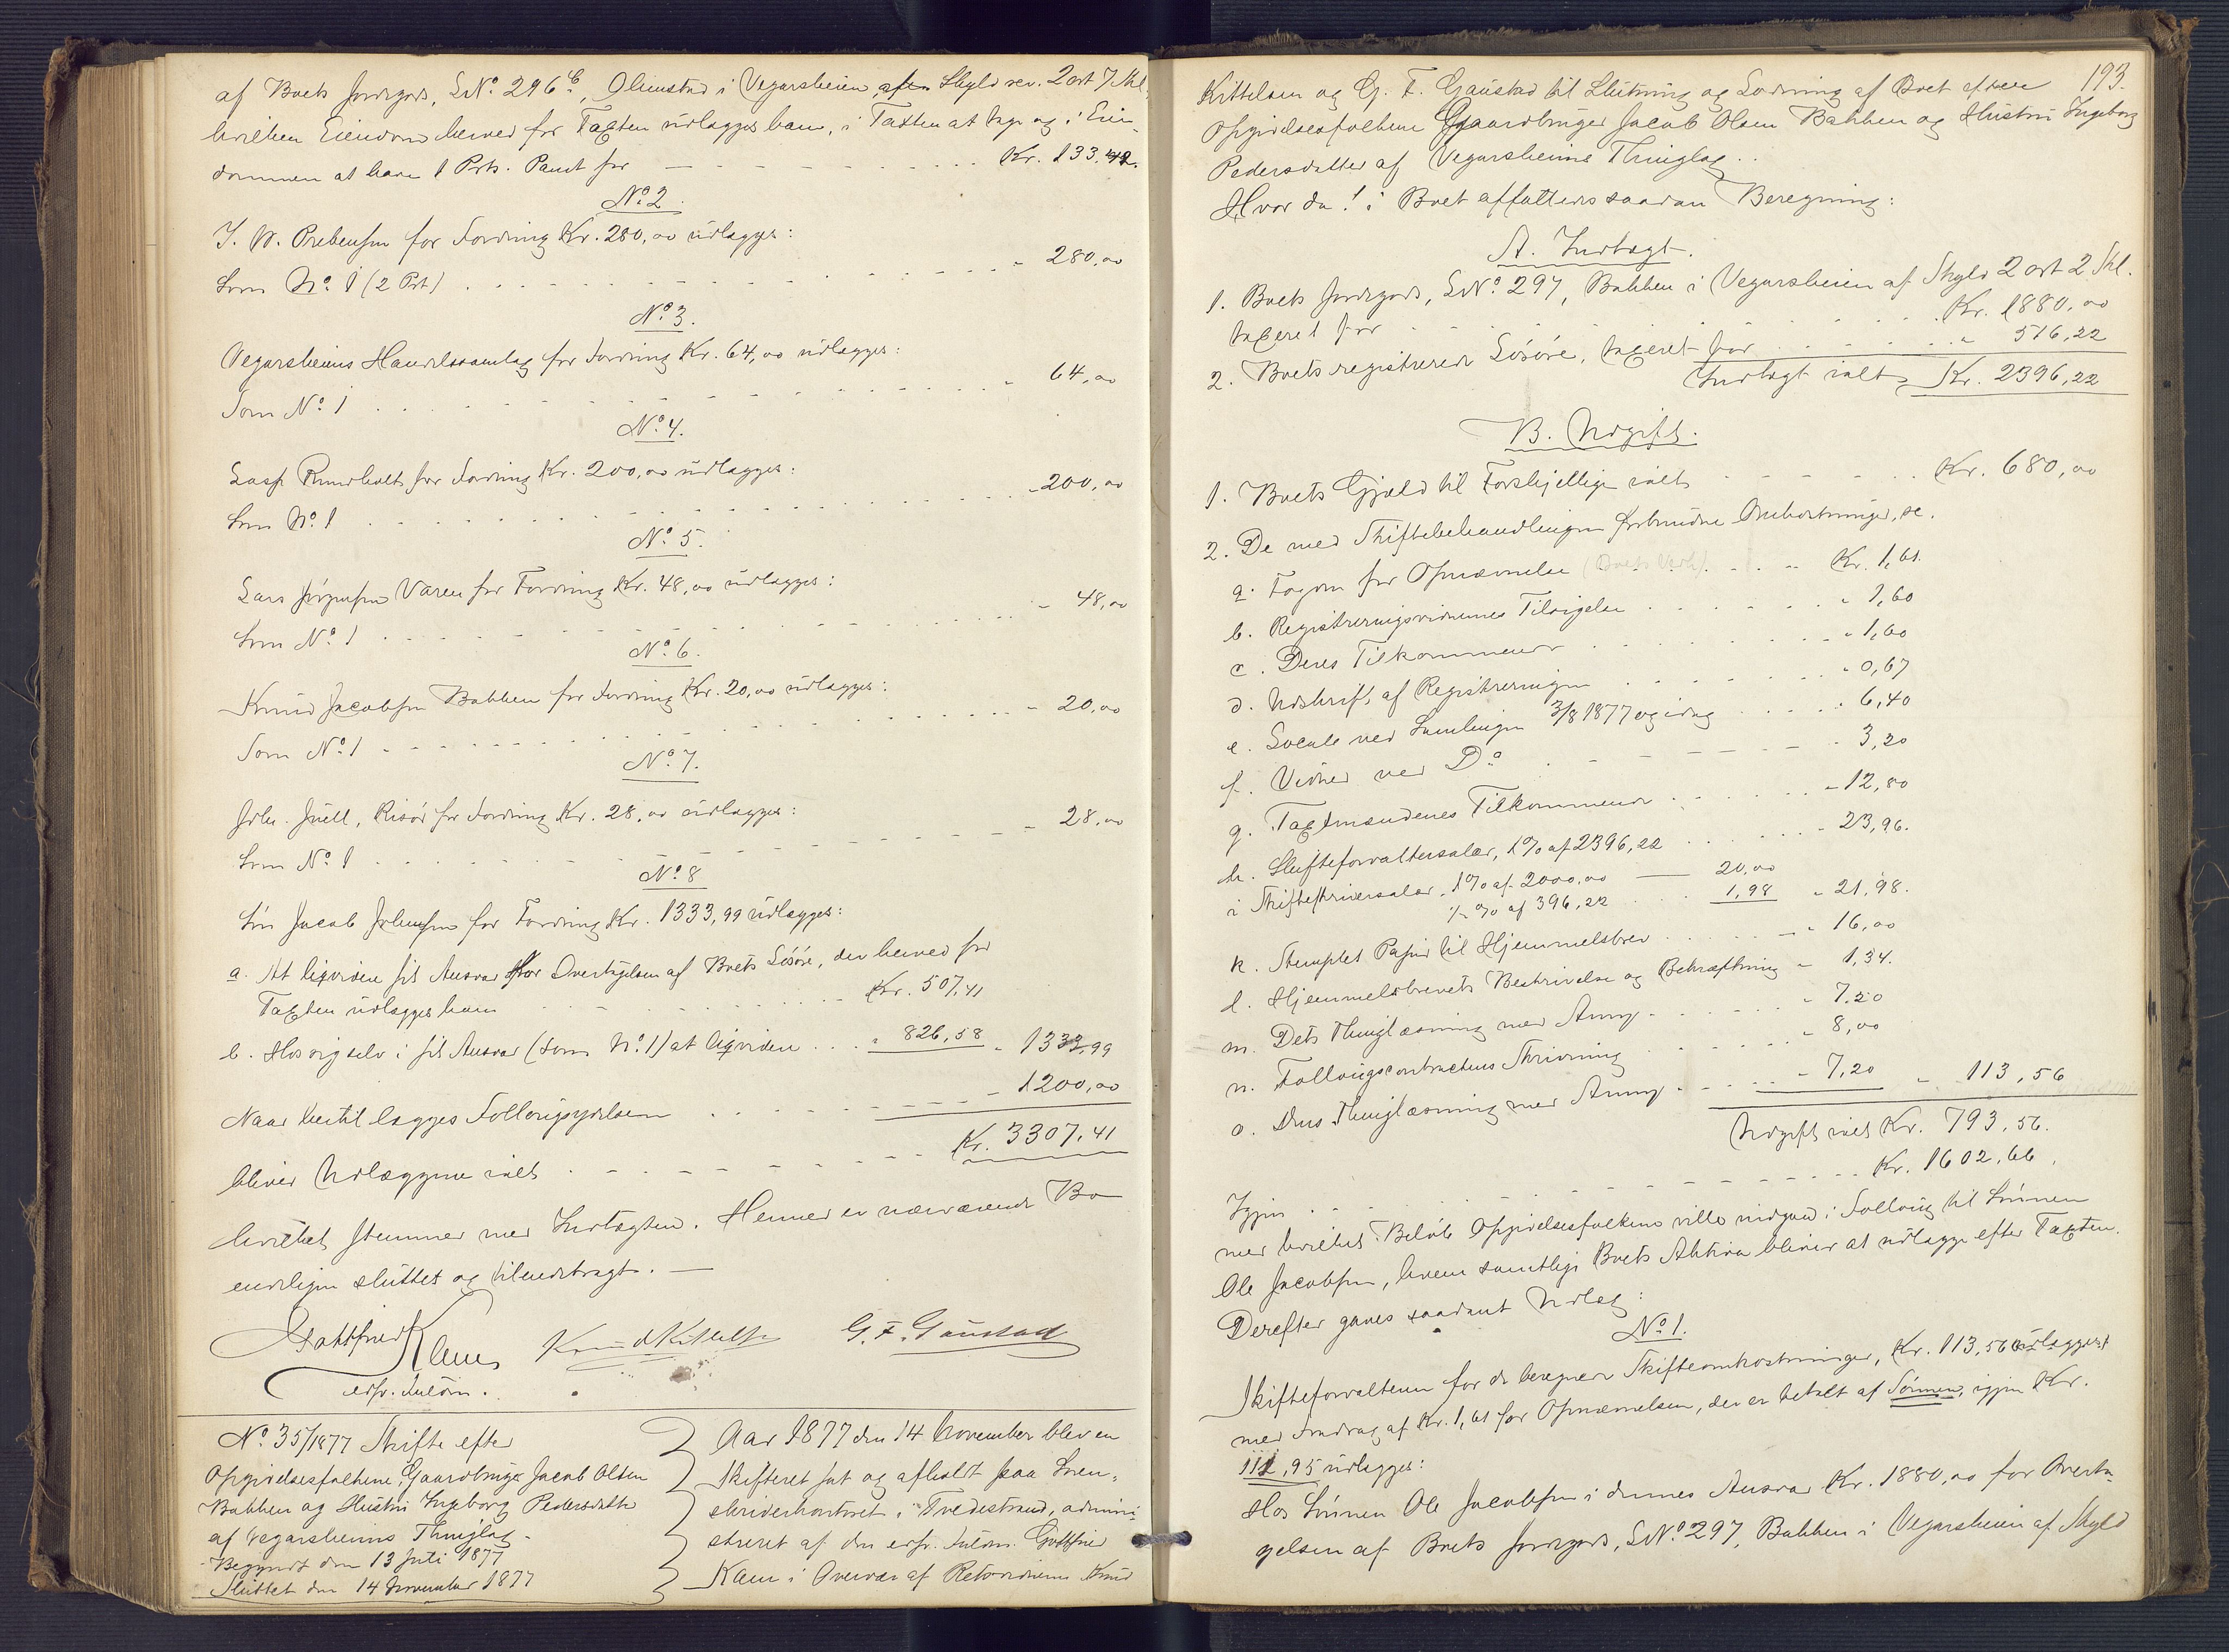 af Boets Jordegods, LNo 296b, Olimstad i Vegarsheien, af Skyld rev. 2 ort 7 Skl.
hvilken Eiendom herved for Taxten udlægges ham, i Taxten at tage og i Eien-
dommen at have 1 Prts. Pant for Kr. 133.42.
No 2.
J. W. Prebensen for Fordring Kr. 280,00 udlægges:
Som No 1 (2 Prt) " 280,00
No 3.
Vegarsheiens Handelssamlag for Fordring Kr. 64,00 udlægges:
Som No 1 " 64,00
No 4.
Rundholt for Fordring Kr. 200,00 udlægges:
Som No 1 " 200,00
No 5.
Lars Jørgensen Våren for Fordring Kr. 48,00 udlægges:
Som No 1 " 48,00
No 6.
Knud Jacobsen Bakken for Fordring Kr. 20,00 udlægges:
Som No 1 " 20,00
No 7.
Juell, Risør for Fordring Kr. 28,00 udlægges:
Som No 1 " 28,00
No 8
Søn Jacob Johnsen for Fordring Kr. 1333,99 udlægges:
a. At liqvidere sit Ansvar for Overtagelsen af Boets Løsøre, der herved for
Taxten udlægges ham Kr. 507,41
b. Hos sig selv i sit Ansvar (som No 1) at liqvidere " 826,58 " 1333,99
Naar hertil lægges Follougsydelsen " 1200,00
bliver Udlæggene ialt Kr. 3307,41
hvilket stemmer med Indtægten. Hermed er nærværende Bo
endeligen sluttet og tilendebragt. —
Gottfried Kknud Kittelsen G. F. Gaustad
edsv. Fuldm.
No 35/1877 Skifte efter
Opgivelsesfolkene, Gaardbruger Jacob Olsen
Bakken og Hustru Ingeborg Pedersdatter
af Vegarsheiens Thinglag.
Begyndt den 13 Juli 1877
Sluttet den 14 November 1877
Aar 1877 den 14 November blev en
Skifteret sat og afholdt paa Soren-
skriverkontoret i Tvedestrand, admini-
streret af den edsv. Fuldm. Gottfried
i Overvær af Retsvidnerne Knud
193.
Kittelsen og G. F. Gaustad til Slutning og Lodning af Boet efter
Opgivelsesfolkene Gaardbruger Jacob Olsen Bakken og Hustru Ingeborg
Pedersdatter af Vegarsheiens Thinglag.
Hvor da! i Boet affattedes saadan Beregning:
A. Indtægt.
1. Boets Jordegods, LNo 297, Bakken i Vegarsheien af Skyld 2 ort 2 Skl.
taxeret for Kr. 1880,00
2. Boets registrerede Løsøre, taxeret for " 516,22
Indtægt ialt Kr. 2396,22
B. Udgift.
1. Boets Gjæld til Forskjellige ialt Kr. 680,00
2. De med Skiftebehandlingen forbundne Omkostninger, sc.
a. Fogden for Opnævnelse Kr. 1,61.
b. Registreringsvidnernes Tilsigelse " 1,60
c. Deres Tilkommende " 1,60
d. Udskrift af Registreringen " 0,67
e. Locale ved Samlingen 3/8 1877 og idag " 6,40
f. Vidner ved Do " 3,20
g. Taxtmændenes Tilkommende " 12,80
h. Skifteforvaltersalær, 1 % af 2396,22 " 23,96.
i Skifteskriversalær, 1 % af 2000,00 — 20,00
½ % af 396,22 1,98 " 21,98.
k. Stemplet Papir til Hjemmelsbrev " 16,00
l. Hjemmelsbrevets Beskrivelse og Bekræftning " 1,34.
m. Dets Thinglæsning med Anmg. " 7.20
n. Follougscontractens Skrivning " 8,00
o. Dens Thinglæsning med Anmg. " 7,20 " 113,56
Udgift ialt Kr. 793,56.
Igjen Kr. 1602,66,
med hvilket Beløb Opgivelsesfolkene ville indgaae i Folloug til Sønnen
Ole Jacobsen, hvem samtlige Boets Aktiva bliver at udlægge efter Taxten.
Derefter gaves saadant Udlæg:
No 1.
Skifteforvalteren for de beregnede Skifteomkostninger, Kr. 113,56 udlægges
med Fradrag af Kr. 1,61 for Opnævnelsen, der er betalt af Sønnen, igjen Kr.
111,95 udlægges:
Hos Sønnen Ole Jacobsen i dennes Ansvar Kr. 1880,00 for Overta-
gelsen af Boets Jordegods, LNo 297, Bakken i Vegarsheien af Skyld